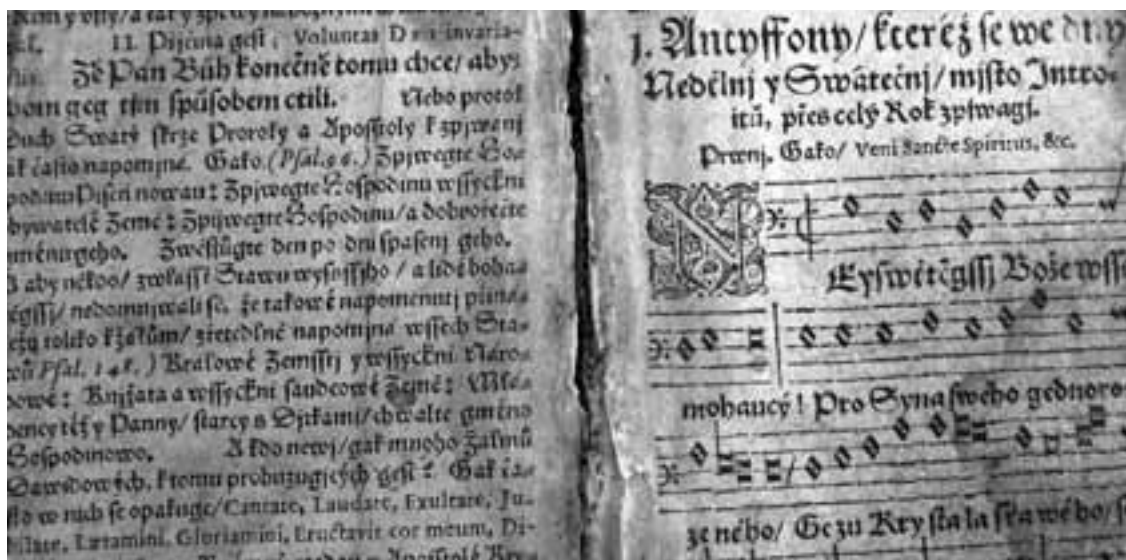 11. Pijčina gest; Voluntas Dei invaria-
Že Pan Bůh konečně tomu chce/ abys
chom geg tim spůsobem ctili. Nebo protok
Duch Swatý skrze Proroky a Apoštoly k zpjwanj
tak často napomjná. Gako (Psal. 96.) Zpjwegte Ho-
spodinu Pjseň nowau: Zpjwegte Hospodinu wssyckni
obywatelé Země: Zpjwegte Hospodinu/ a dobrořečte
gménu geho. Zwěstůgte den po dni spasenj geho.
A aby někdo/ zwlasstě Stawu wyssyho / a lidé boha-
těgssj/ nedomnjwali se, že takowé napomenutj
toliko k žalům/ zřetedlně napomjná wssech Sta-
wů Psal. 148.) Králowé Zemsstj y wssyckni Náro-
dowé: Knjžata a wssyckni saudcowé Země: Mlá-
dency též y Panny/ starcy s Djtkami/ chwalte gméno
Hospodinowo. A kdo newj/ gak mnoho Žalmů
Dawidowých, k tomu probuzugjcých gest? Gak ča-
sto w nich se opakuge/ Cantate, Laudate, Exultate, Ju-
bilate, Lætamini, Gloriamini, Eructavit cor meum, Di-
j. Antyffony/ kteréž se we dny
Nedělnj y Swátečnj/ mjsto Intro-
itů, přes celý Rok zpjwagj.
Prwnj. Gako/ Veni Sancte Spiritus, &c.
NEyswětěgssj Bože wsse
mohaucý! Pro Syna swého gednoro-
zeného/ Gezu Krysta laskawého/